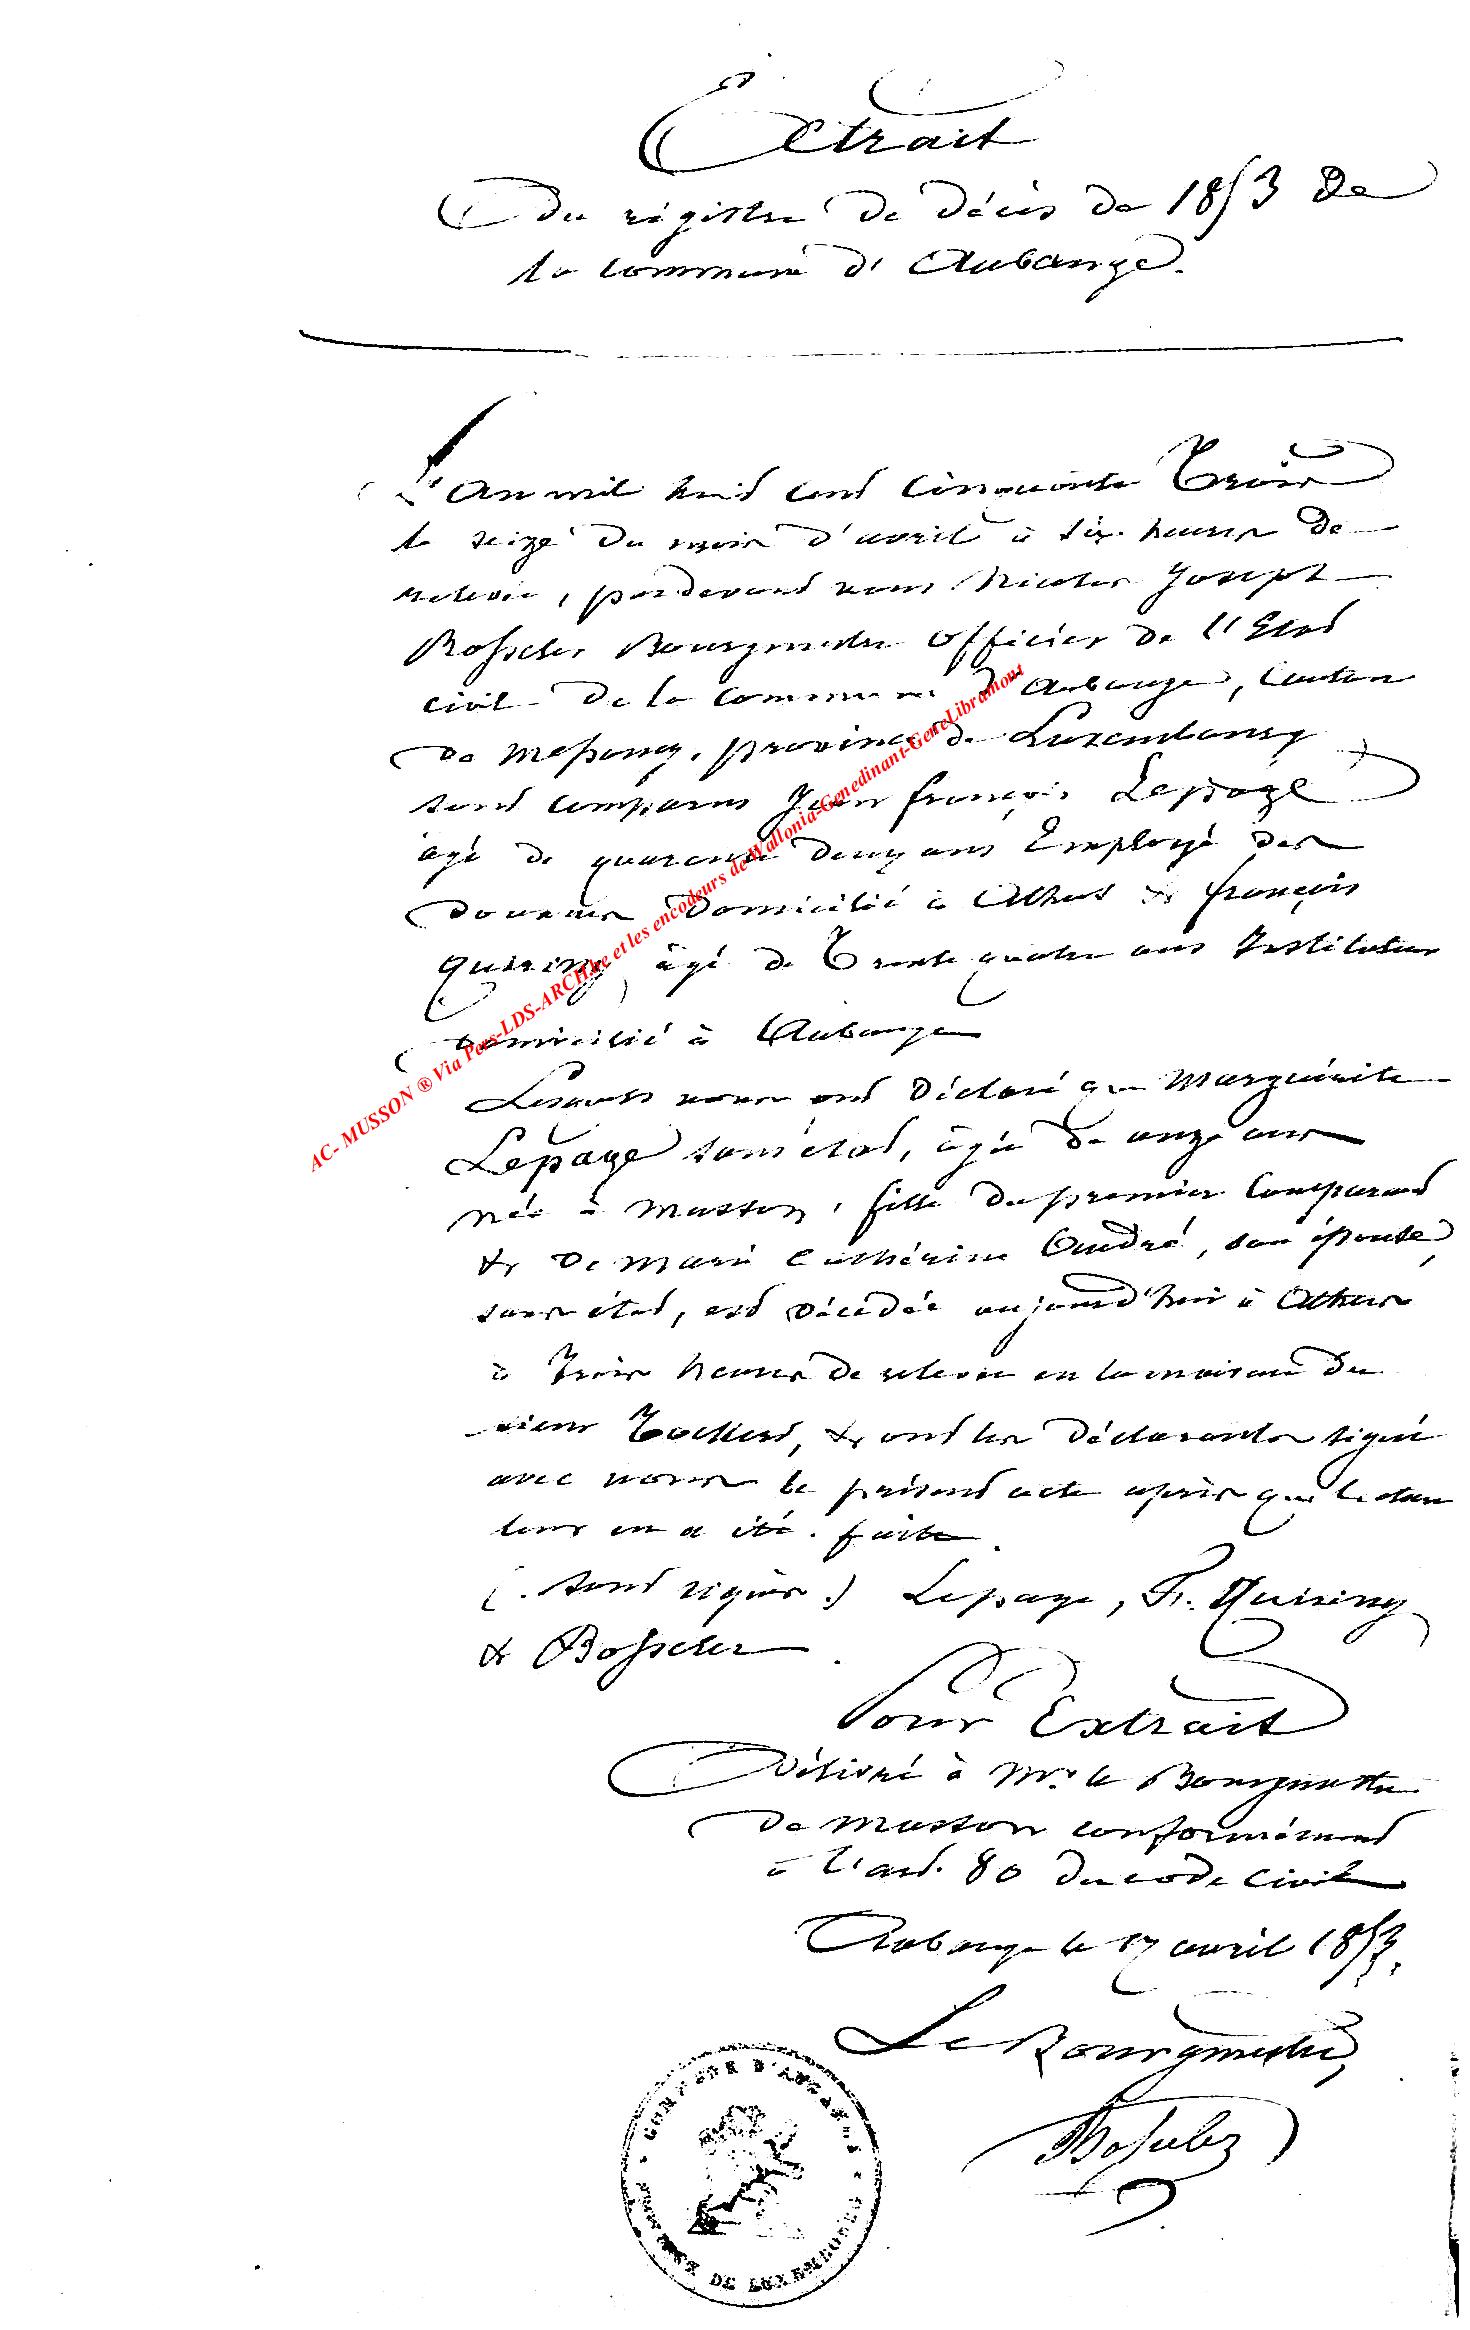 Extrait
Du régistre de décès de 1853 de
la commune d'Aubange.
L'An mil huit cent cinquante Trois
le seize du mois d'avril à six heures de
relevée, pardevant nous Nicolas Joseph
Bosseler Bourgmestre officier de l'Etat
civil de la commune d'Aubange, Canton
de Messancy, province de Luxembourg
sont comparus Jean françois Lepage
âgé de quarente deux ans Employé des
douanes domicilié à Athus & françois
Quiriny âgé de Trente quatre ans Instituteur
domicilié à Aubange
Lesquels nous ont déclaré que Marguérite
Lepage sans état, âgée de onze ans
née à Musson, fille du premier Comparant
& de Marie Cathérine André, son épouse,
sans état, est décédée aujourd'hui à Athus
à Trois heures de relevée en la maison du
sieur Tockert, & ont les déclarants signé
avec nous le présent acte après que lecture
leur en a été faite.
(. sont signés .) Lepage, F. Quiriny
& Bosseler
Pour Extrait
Délivré à Mr. le Bourgmestre
de Musson conformément
à l'art. 80 du code civil
Aubange le 17 avril 1853.
Le Bourgmestre,
Bosseler
COMMUNE D'AUBANGE
DE LUXEMBOURG
AC- MUSSON ® Via Pers-LDS-ARCHbe et les encodeurs de Wallonia-Genedinant-GeneLibramont